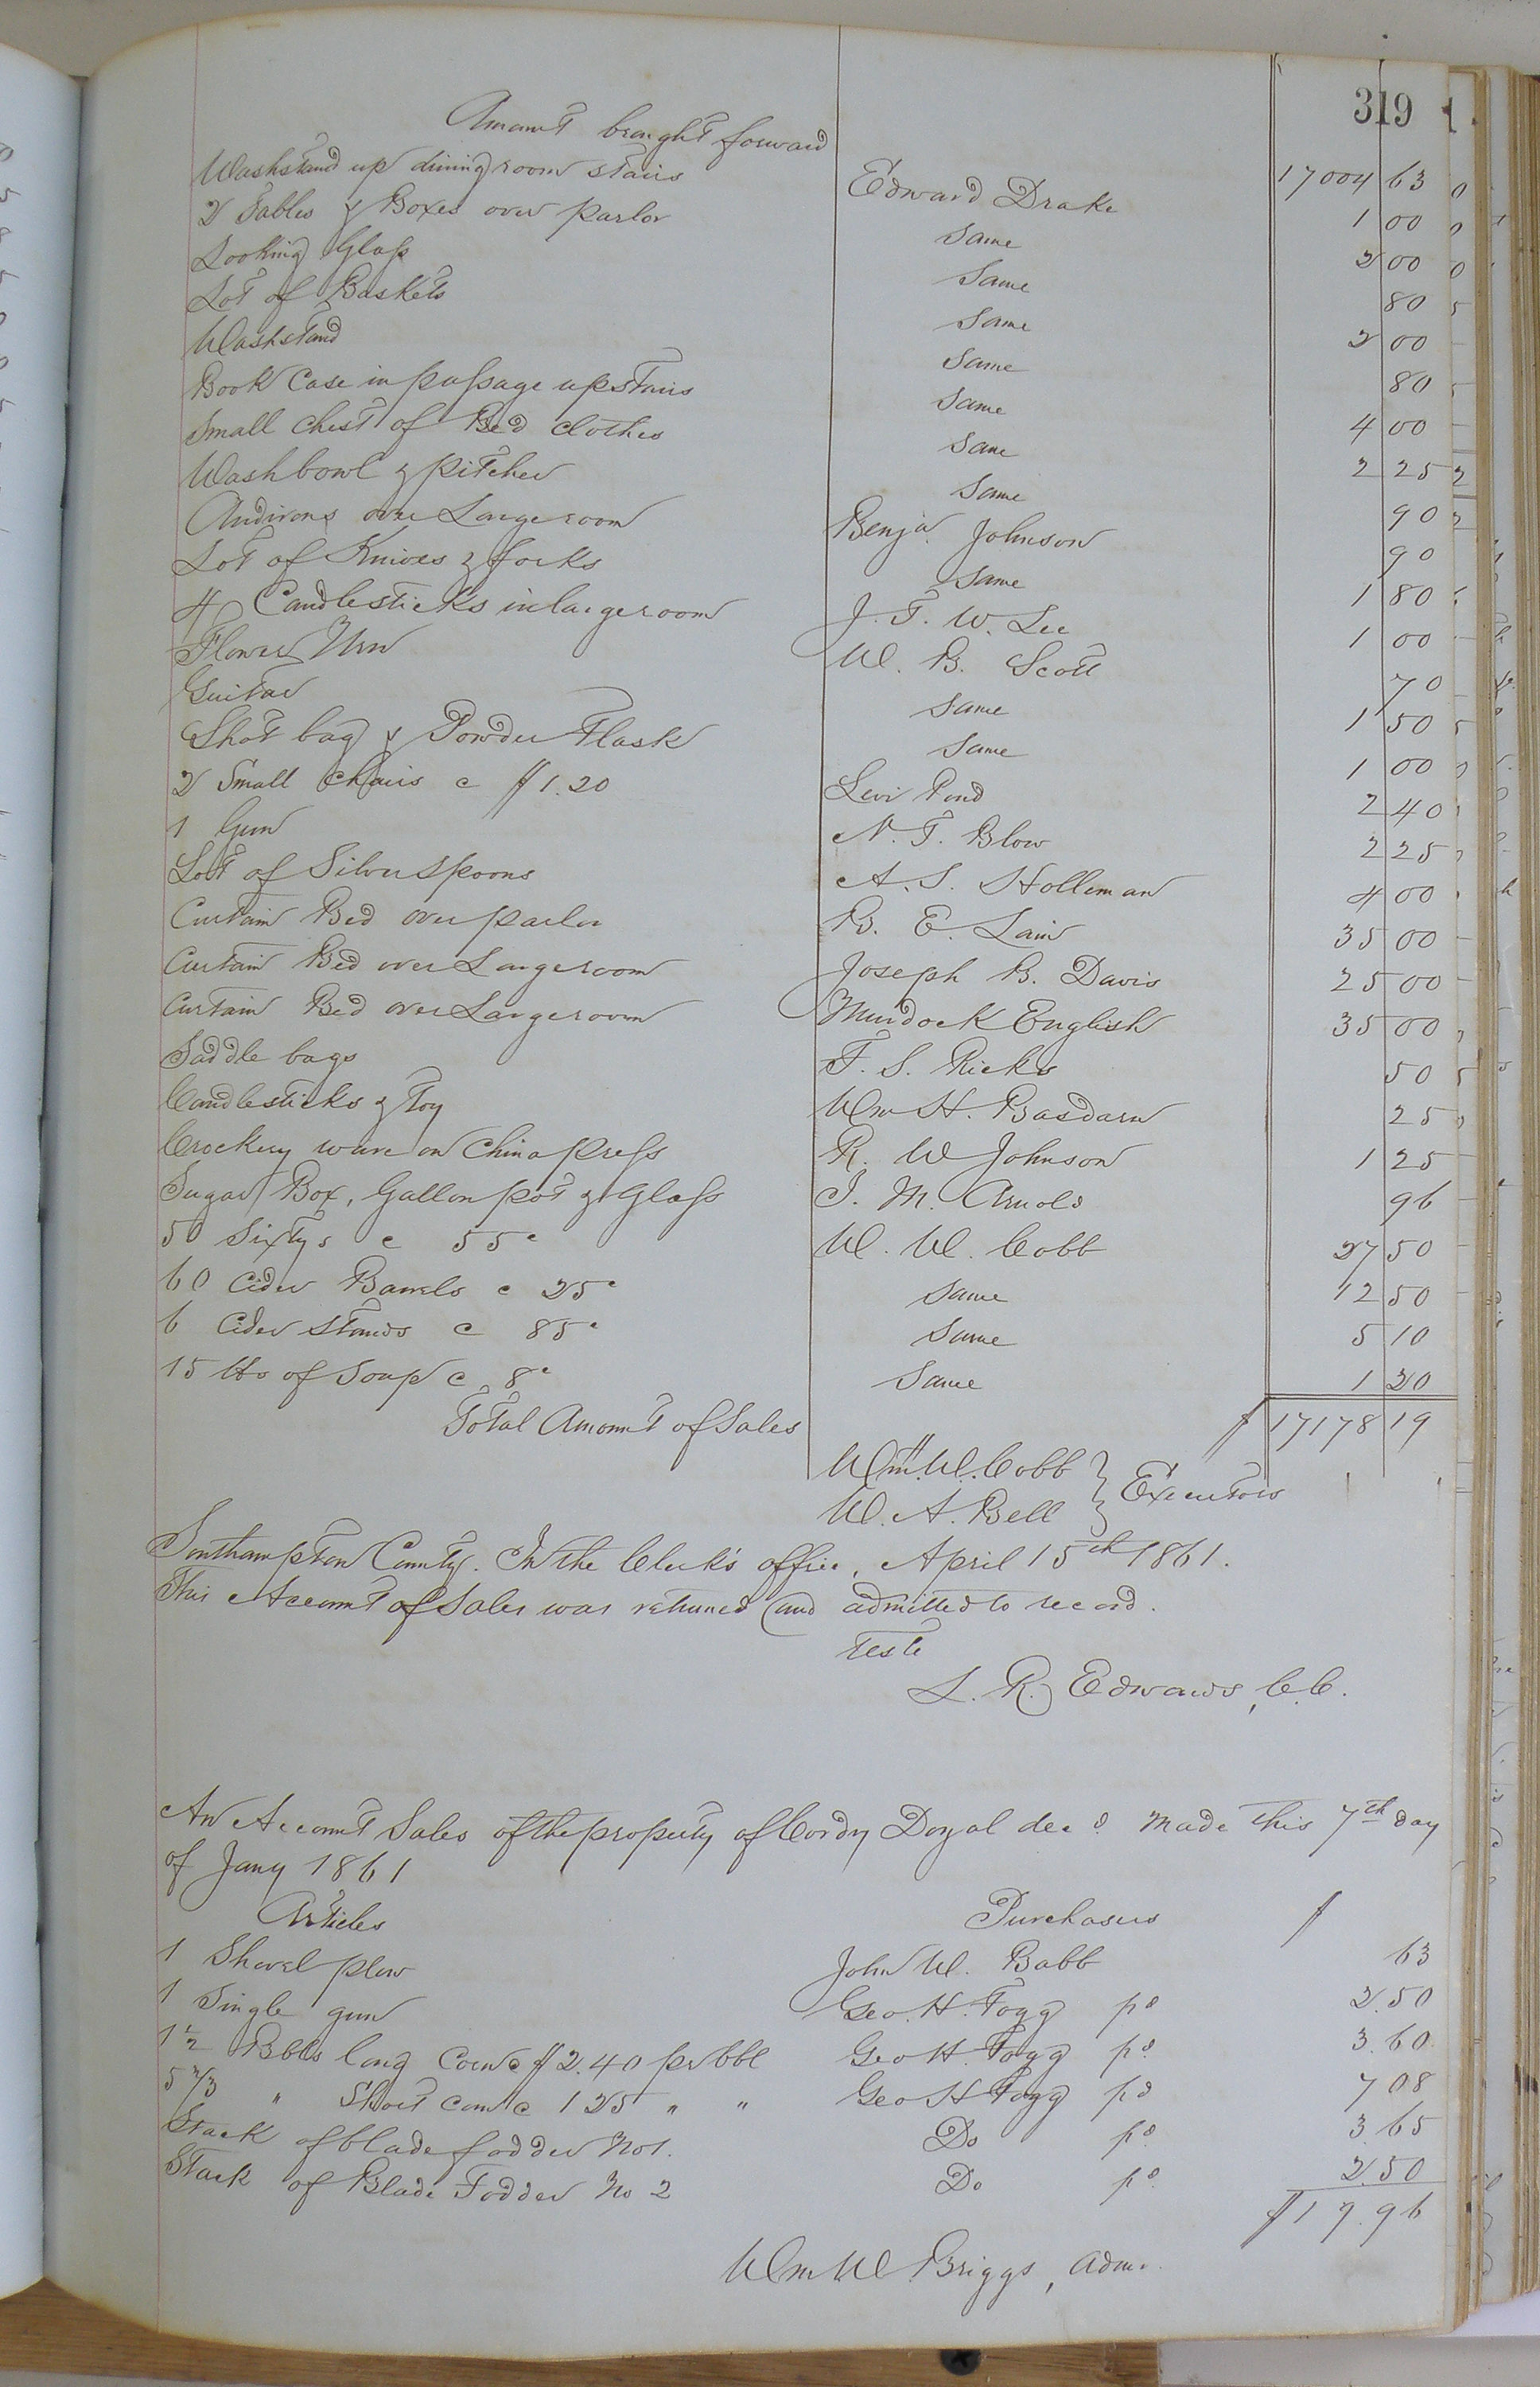 319
Amount brought forward 17004 63
Washstand up dining room stairs Edward Drake 1 00
2 Tables & Boxes over parlor Same 2 00
Looking Glass Same 80
Lot of Baskets Same 2 00
Washstand Same 80
Book Case in passage upstairs Same 4 00
Small Chest of Bed Clothes Same 2 25
Washbowl & pitcher Same 90
Andirons over Large room Benja. Johnson 90
Lot of Knives & forks Same 1 80
4 Candlesticks in large room J. T. W. Lee 1 00
Flower Urn W. B. Scott 70
Guitar Same 1 50
Shot bag & Powder Flask Same 1 00
2 Small Chairs @ $1.20 Levi Pond 2 40
1 Gun N. T. Blow 2 25
Lot of Silver spoons A. S. Holleman 4 00
Curtain Bed over parlor B. E. Lain 35 00
Curtain Bed over Large room Joseph B. Davis 25 00
Curtain Bed over Large room Murdock English 35 00
Saddle bags F. S. Ricks 50
Candlesticks & Toy Wm H. Basdarn 25
Crockery ware on China press R. W Johnson 1 25
Sugar Box, Gallon pot & Glass J. M. Arnold 96
50 Sixtys @ 55c W. W. Cobb 27 50
60 Cider Barrels @ 25c Same 12 50
6 Cider Stands @ 85c Same 5 10
15 lbs of Soap @ 8c Same 1 20
Total Amount of Sales $ 17178 19
Wm. W. Cobb } Executors
W. A. Bell
Southampton County. In the Clerk's office, April 15th 1861.
This Account of Sales was returned and admitted to record.
Teste
L. R. Edwards, C.C.
An Account Sales of the property of Cordy Doyal decd. made this 7th day
of Jany 1861
Articles Purchasers $
1 Shovel plow John W. Babb 63
1 Single gun Geo. H. Fogg pd 2.50
1½ Bbls long Corn @ $2.40 pr bbl Geo H. Fogg pd. 3.60
5 2/3 " Short corn @ 1 25 " " Geo H Fogg pd 7 08
Stack of blade fodder No 1. Do pd. 3.65
Stack of Blade Fodder No 2 Do pd. 2.50
$19.96
Wm W Briggs, Admr.